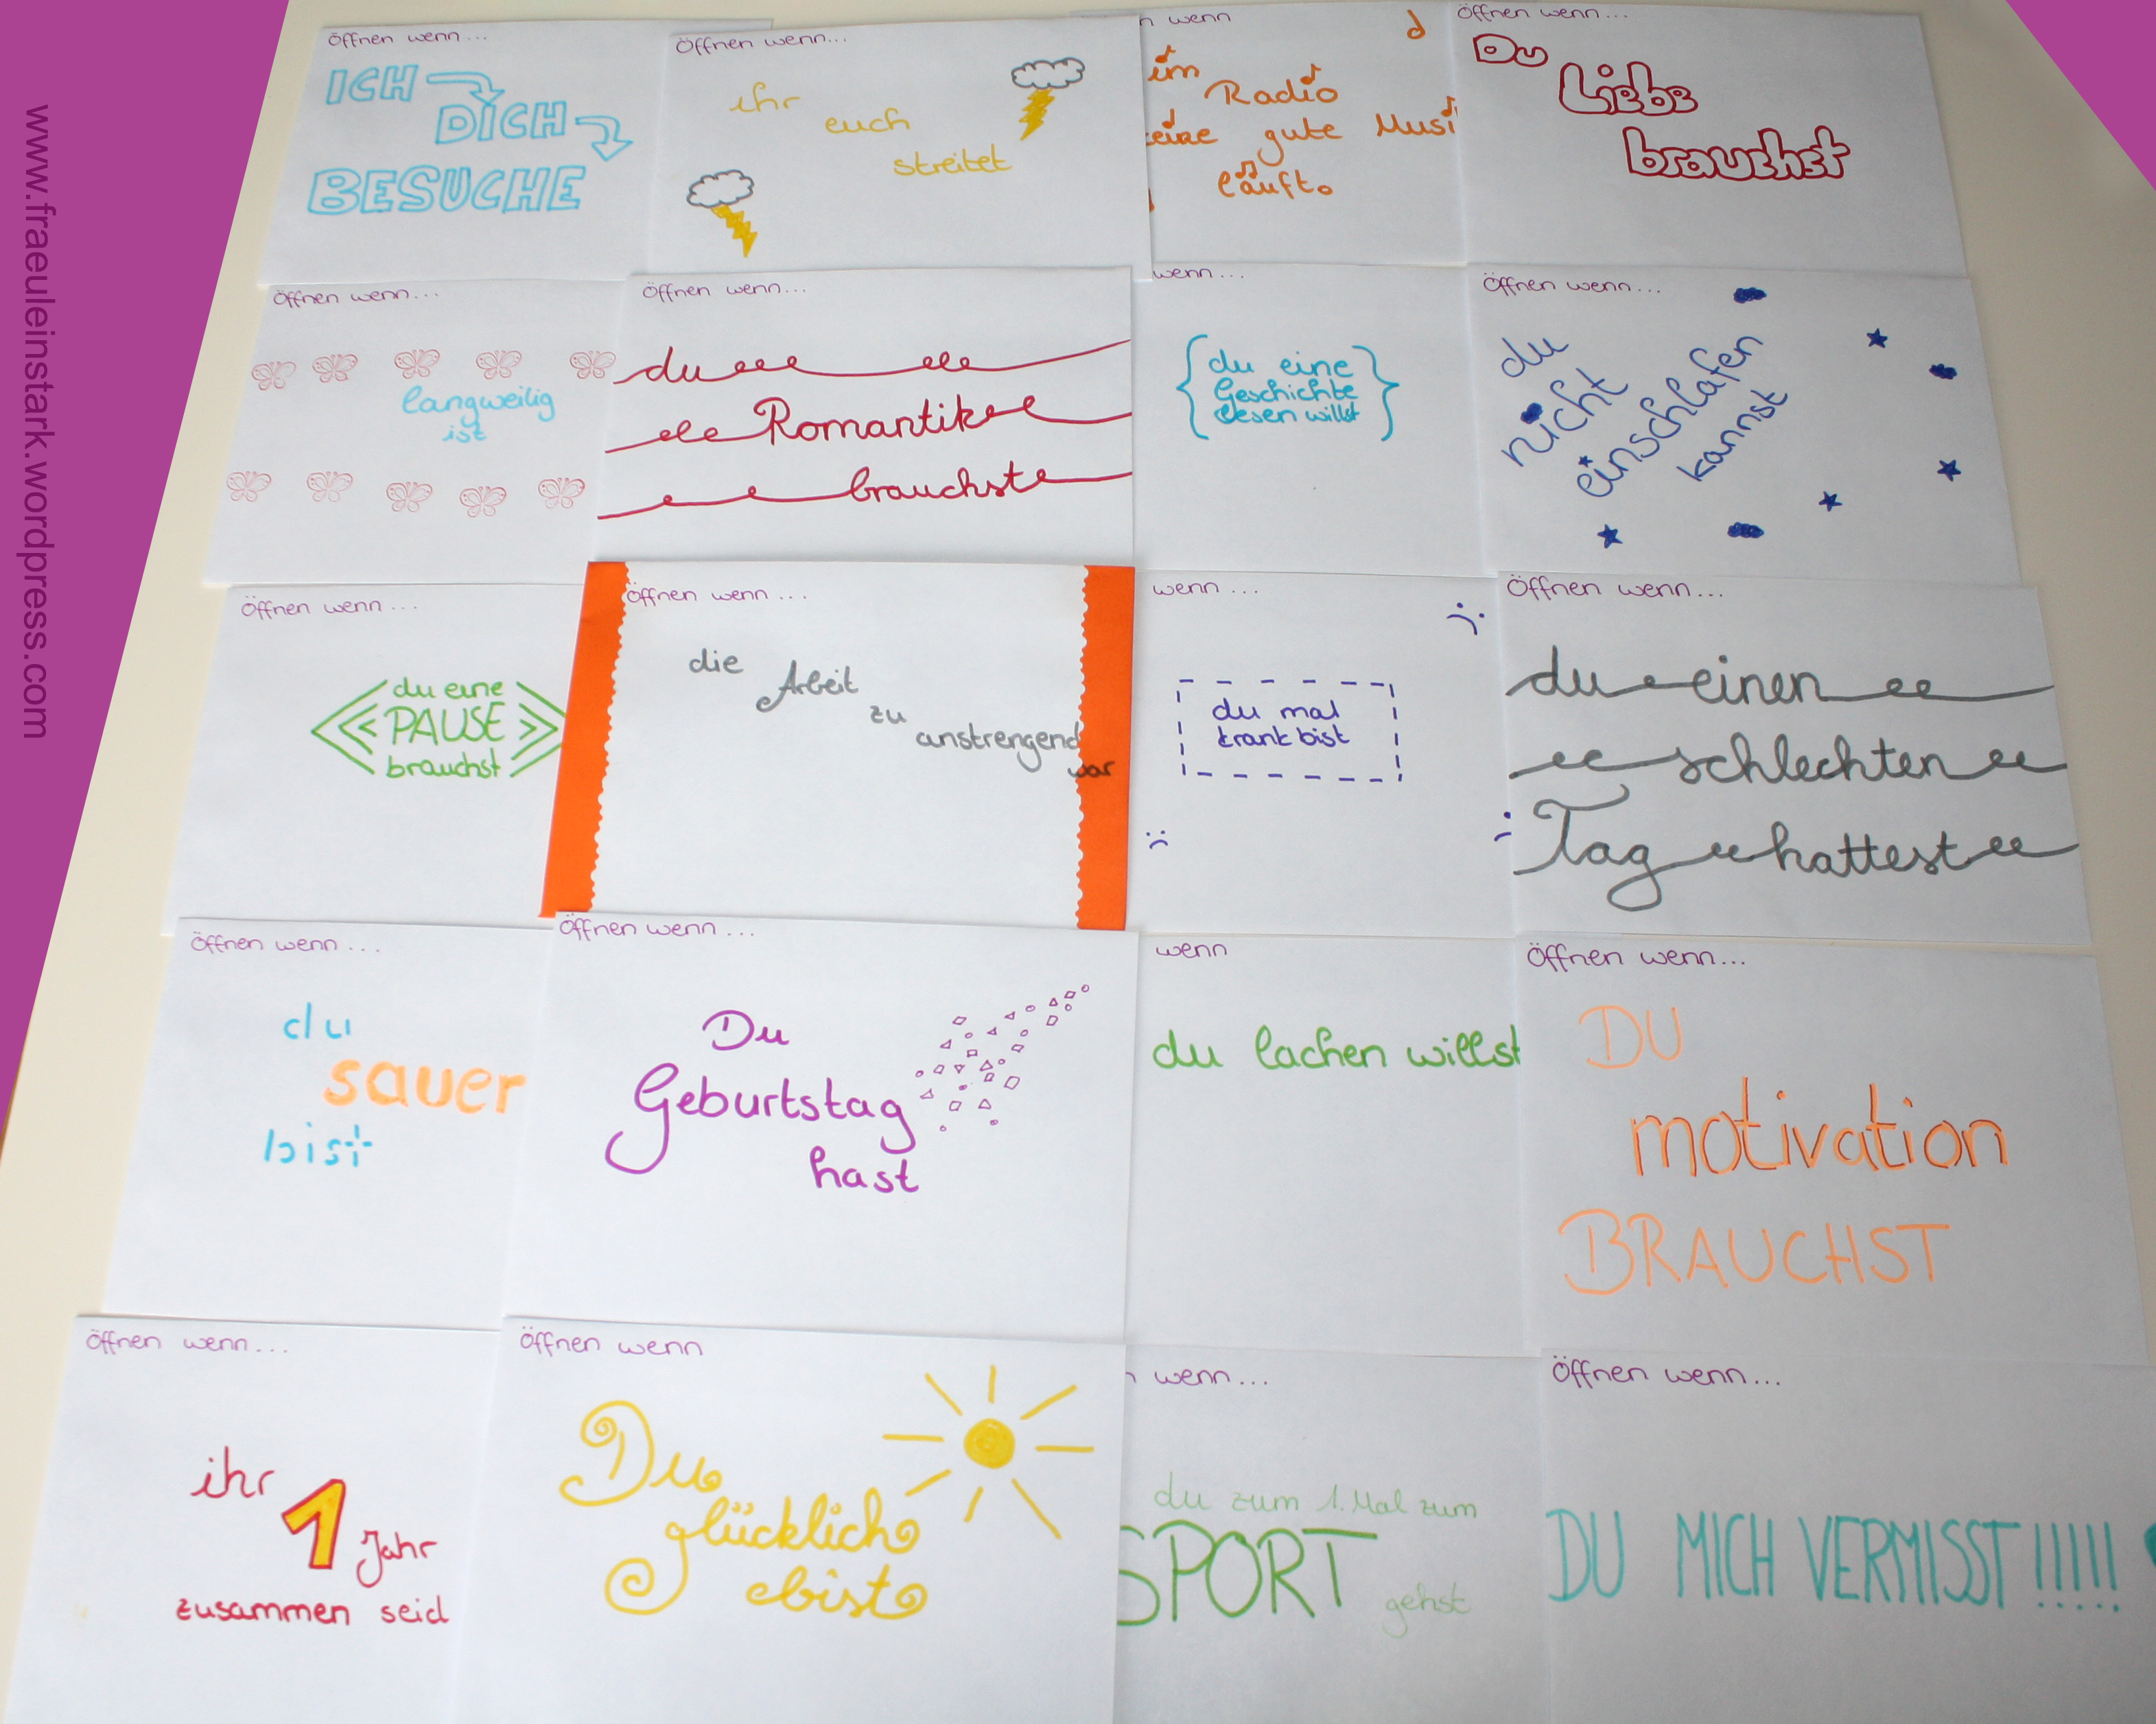 www.fraeuleinstark.wordpress.com
Öffnen wenn...
ICH
DICH
BESUCHE
Öffnen wenn...
ihr
euch
streitet
n wenn
im
Radio
keine gute Musi
läuft
Öffnen wenn...
Du
Liebe
brauchst
Öffnen wenn...
langweilig
ist
Öffnen wenn...
du
Romantik
brauchst
wenn...
du eine
Geschichte
lesen willst
Öffnen wenn...
du
nicht
einschlafen
kannst
Öffnen wenn...
du eine
PAUSE
brauchst
Öffnen wenn...
die
Arbeit
zu
anstrengend
war
wenn...
du mal
krank bist
Öffnen wenn...
du einen
schlechten
Tag hattest
Öffnen wenn...
du
sauer
bist
Öffnen wenn...
Du
Geburtstag
hast
wenn
du lachen willst
Öffnen wenn...
DU
motivation
BRAUCHST
Öffnen wenn...
ihr
1 Jahr
zusammen seid
Öffnen wenn
Du
glücklich
bist
n wenn...
du zum 1. Mal zum
SPORT
gehst
Öffnen wenn...
DU MICH VERMISST!!!!!